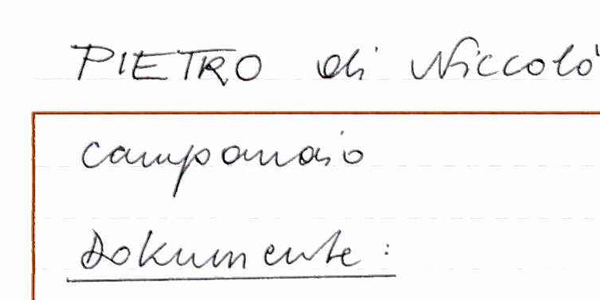 PIETRO di Niccolò
campanaio
Dokumente: